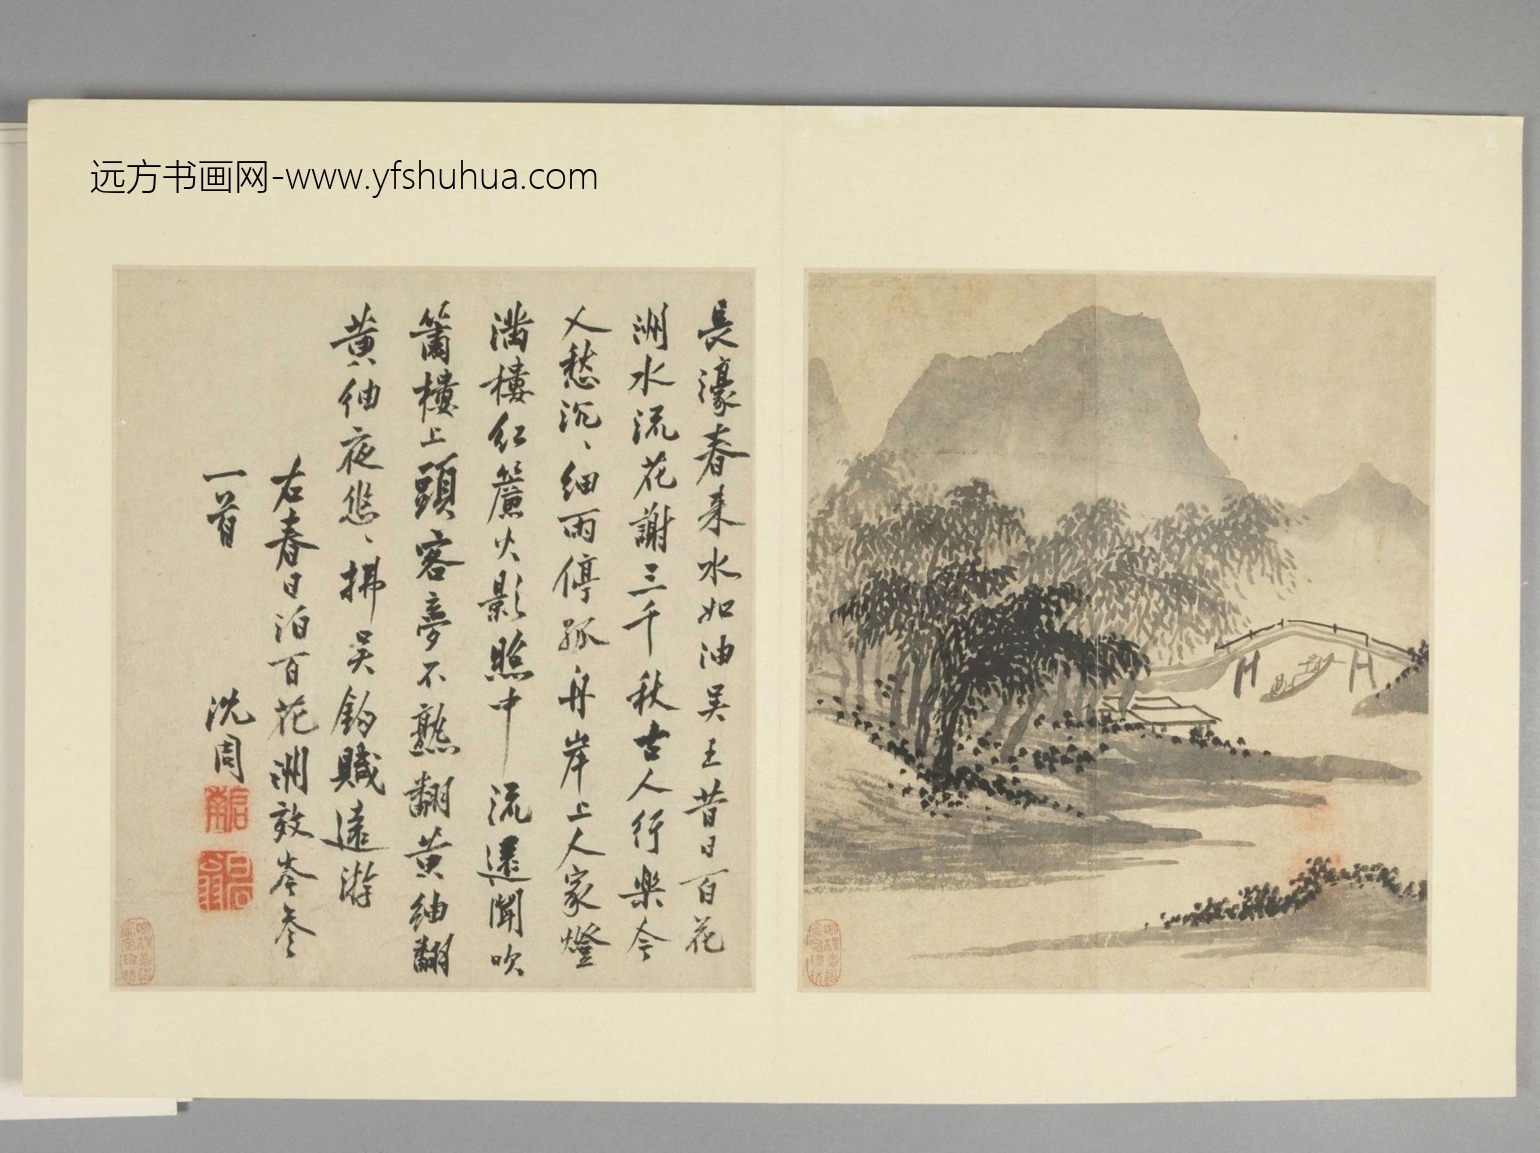 远方书画网-www.yfshuhua.com
長濠春來水如油吴王昔日百花
洲水流花謝三千秋古人行樂今
人愁沉、細雨停孤舟岸上人家燈
滿樓紅簾火影照中流還聞吹
簫樓上頭客夢不熟翻黄紬翻
黄紬夜悠、拂吴鈎賦遠游
右春日泊百花洲效岑參
一首
沈周
啓南
白石翁